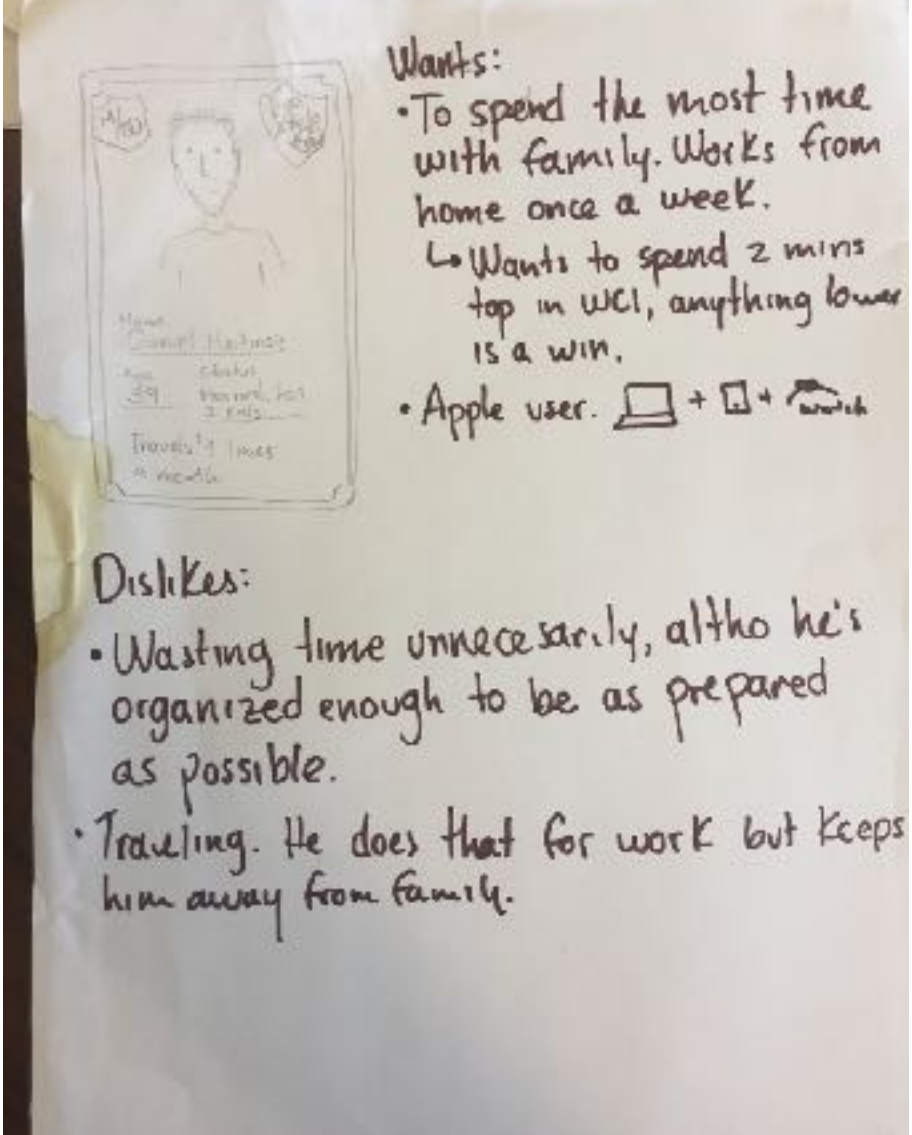 Wants:
• To spend the most time
with family. Works from
home once a week.
↳ Wants to spend 2 mins
top in WCI, anything lower
is a win.
• Apple user. + +
watch
Name
39
status
married, has
2 kids
Travels 4 times
a month
Dislikes:
• Wasting time unnecesarily, altho he's
organized enough to be as prepared
as possible.
• Traveling. He does that for work but keeps
him away from family.